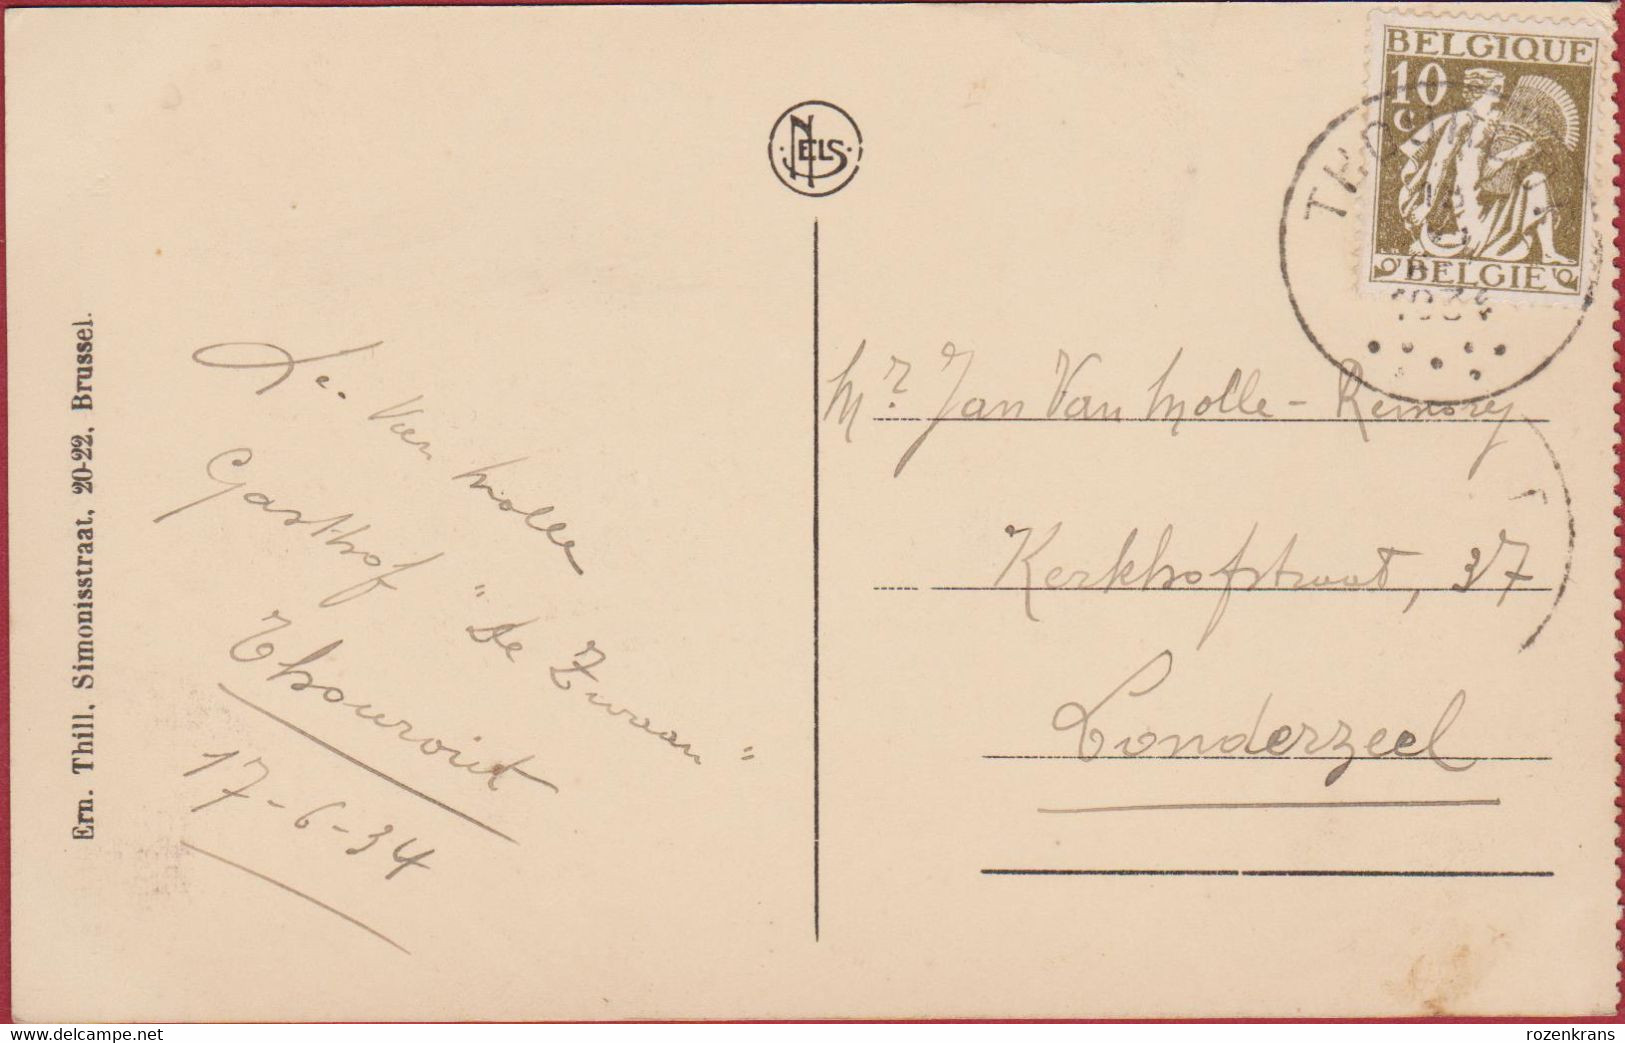 Ern. Thill, Simonisstraat, 20-22, Brussel.
NELS
BELGIQUE
10
c
BELGIE
THOUROUT
1934
Van Molle
Gasthof "De Zwaan"
Thourout
17-6-34
Mr. Jan Van Molle - Remorey
Kerkhofstraat, 37
Londerzeel
www.delcampe.net
rozenkrans